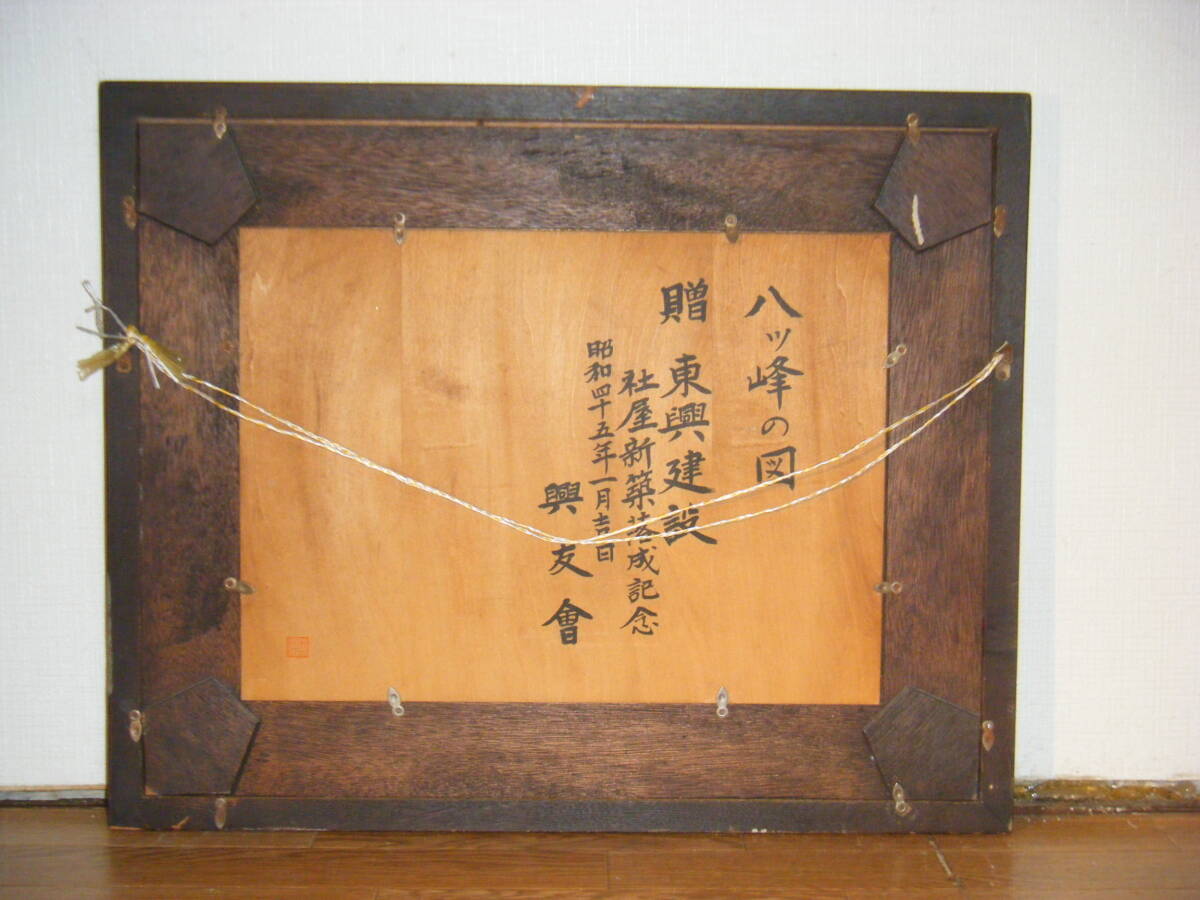 八ッ峰の図
贈 東興建設
社屋新築落成記念
昭和四十五年一月吉日
興友會